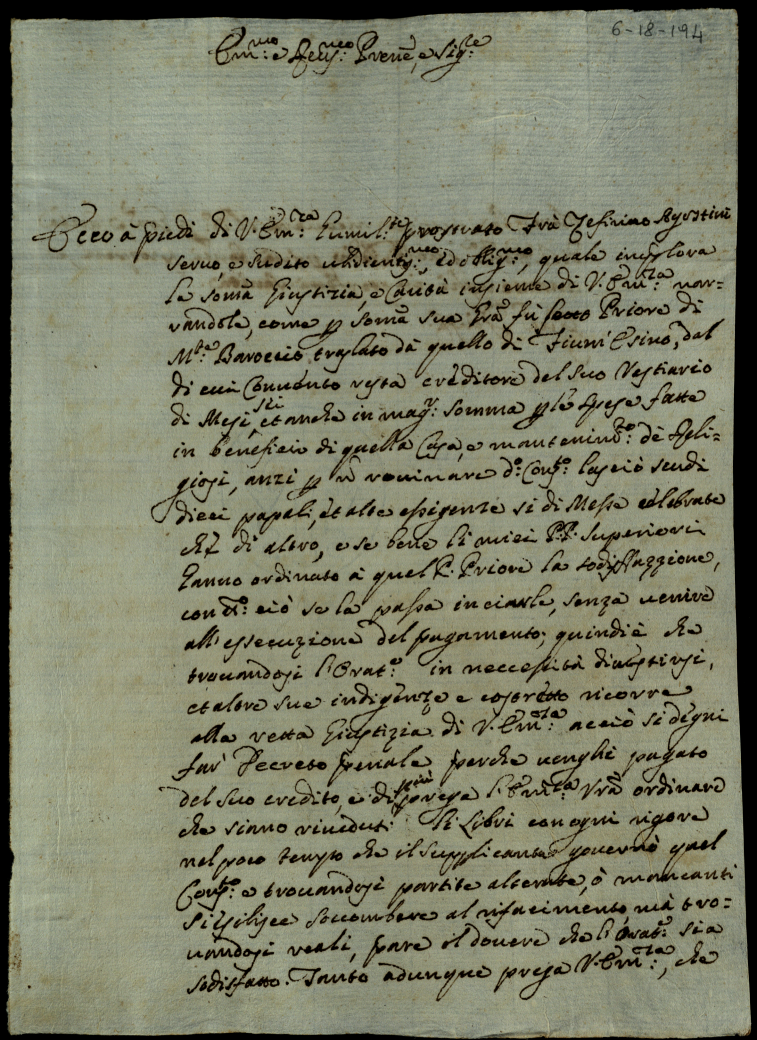 6-18-194
Em:mo e Rev:mo Prene, e Sig:re
Ecco à piedi di V. Em:za humil:te prostrato Frà Zefirino Agostini
servo, e sudito ubidient:mo, ed oblig:mo, quale implora
la somã Giustizia, e Carità insieme di V. Em:za nar-
randole, come p somã sua Grã fù fatto Priore di
M:te Baroccio traslato dà quello di Fiumi Esino, dal
di cui Convento resta creditore del suo Vestiario
di Mesi sei, et anche in mag:r somma p le spese fatte
in beneficio di quella Casa, e mantenim:to de Reli-
giosi, anzi p ñ rovinare d:o Conv:to lasciò scudi
dieci papali, et altre essigenze si di Messe celebrate
che di altro, e se bene li miei P.P. Superiori
hanno ordinato à quel P. Priore la sodisfazzione,
con tt:o ciò se la passa in ciarle, senza venire
all'essecuzione del pagamento; quindi è che
trovandosi l'Orat:e in neccessità di vestirsi,
et altre sue indigenze e costretto ricorre
alla retta Giustizia di V. Em:za acciò si degni
far Decreto penale perche venghi pagato
del suo credito, e di più prega l'Em:za Vrã ordinare
che siano riveduti li Libri con ogni rigore
nel poco tempo che il supplicante governò quel
Conv:to e trovandosi partite alterate, ò mancanti
si esibisce soccombere al rifacimento, mà tro-
vandosi reali, pare il dovere che l'Orat:e sia
sodisfatto. Tanto adunque prega V. Em:za, che